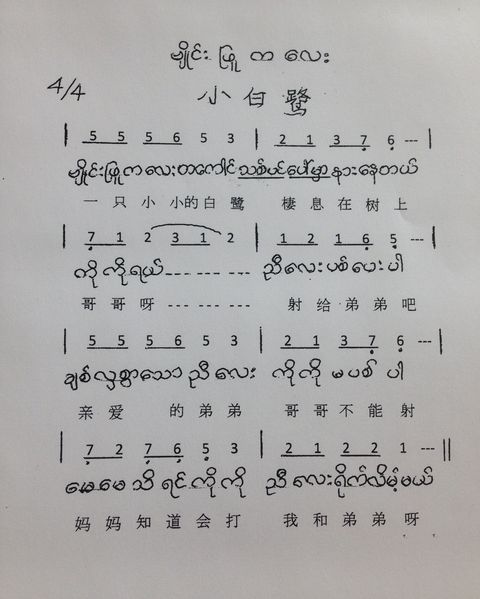 ဗျိုင်း ဖြူ က လေး
4/4
小白鹭
| 5 5 5 6 5 3 | 2 1 3 7 6 --- |
ဗျိုင်းဖြူကလေးတကောင် သစ်ပင်ပေါ်မှာနားနေတယ်
一只小小的白鹭 棲息在树上
| 7 1 2 3 1 2 | 1 2 1 6 5 --- |
ကိုကိုရယ် ---------- ညီလေးပစ်ပေးပါ
哥哥呀 ---------- 射给弟弟吧
| 5 5 5 6 5 3 | 2 1 3 7 6 --- |
ချစ်လှစွာသော ညီလေး ကိုကို မပစ်ပါ
亲爱 的弟弟 哥哥不能射
| 7 2 7 6 5 3 | 2 1 2 2 1 --- ||
မေမေ သိ ရင် ကိုကို ညီလေးရိုက်လိမ့်မယ်
妈妈知道会打 我和弟弟呀